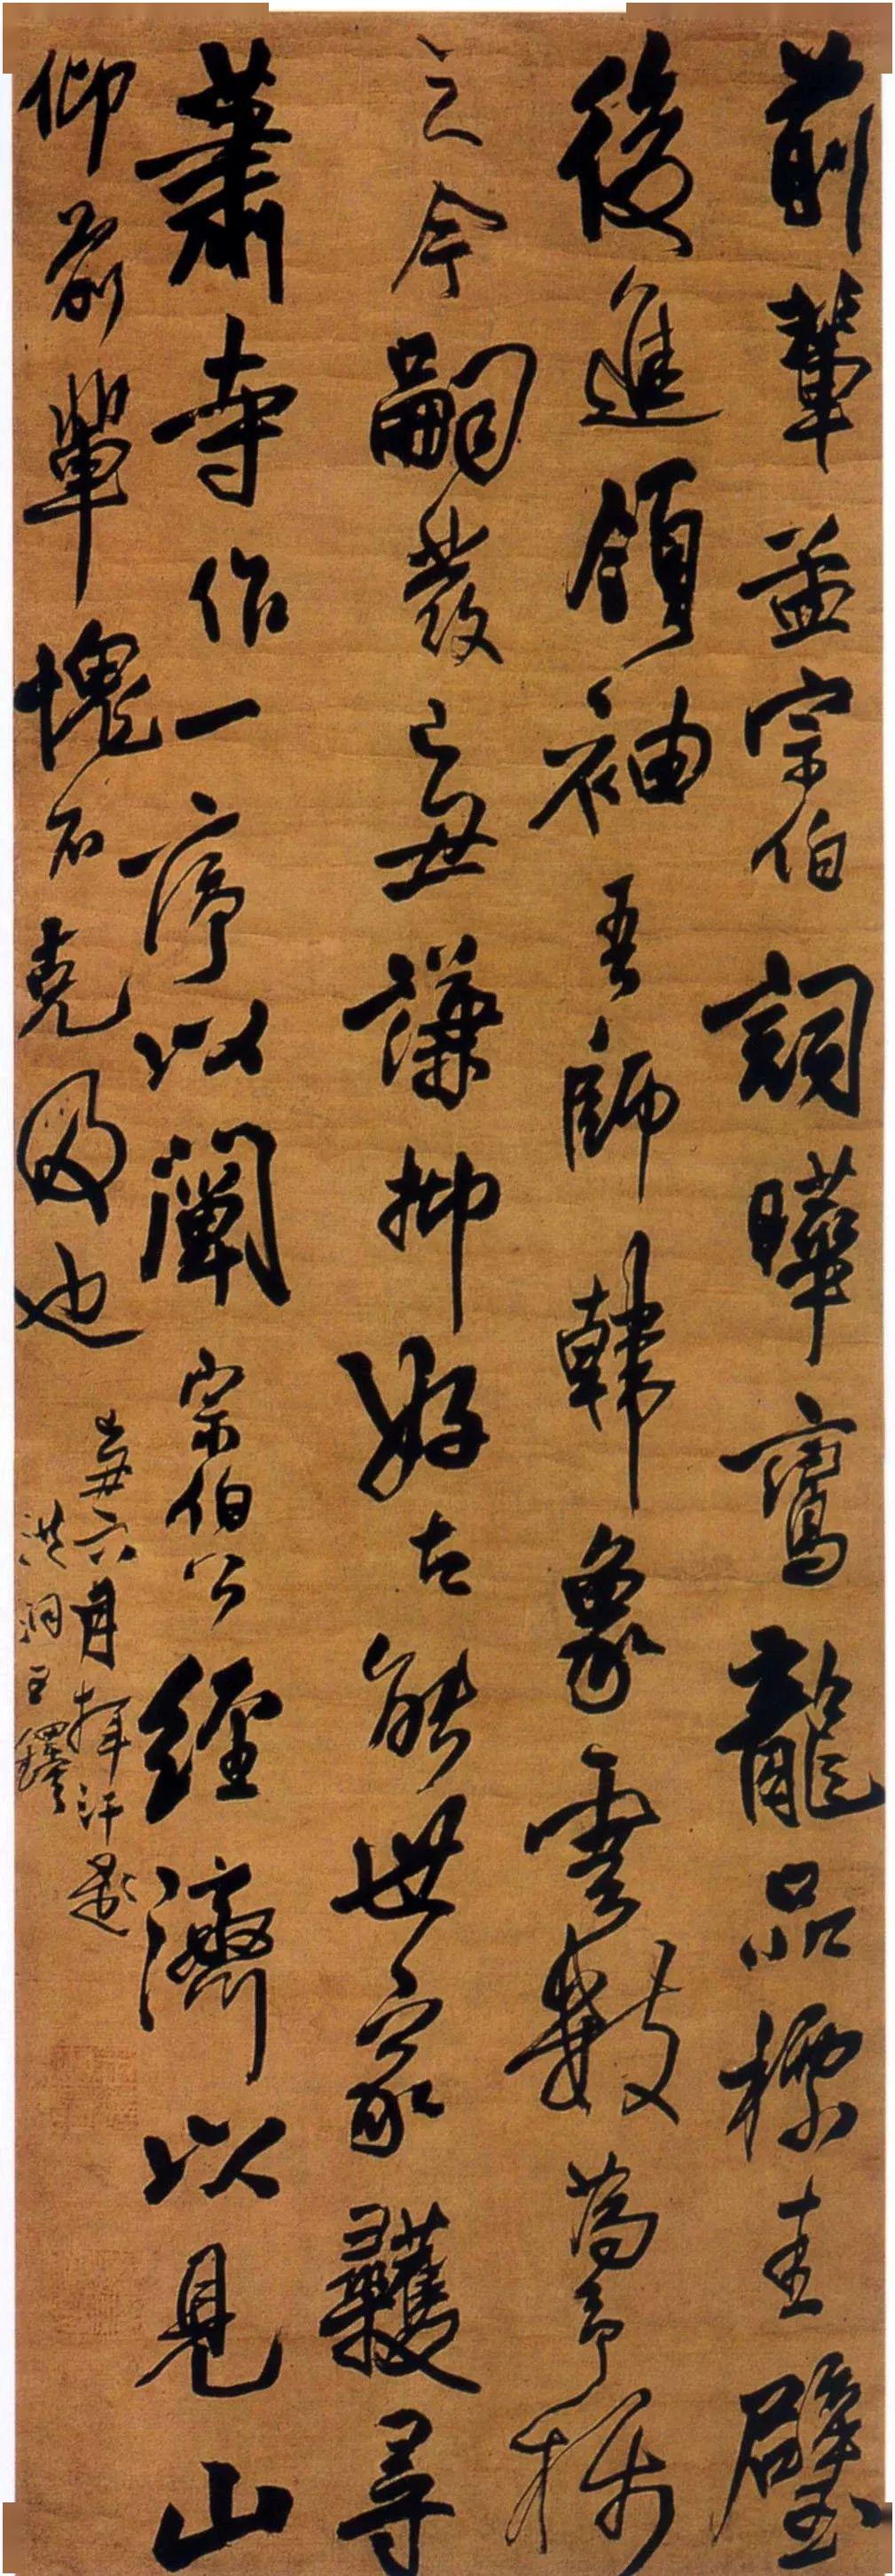 前輩孟宗伯詞曄鸞龍品標圭璧
後進領袖吾師韓象雲數為予
之令嗣發己丑謙抑好古能世家尋
蕭寺作一序以闡宗伯公經濟以見山
仰前輩愧不克也
丑六月揮汗題
洪洞王鐸